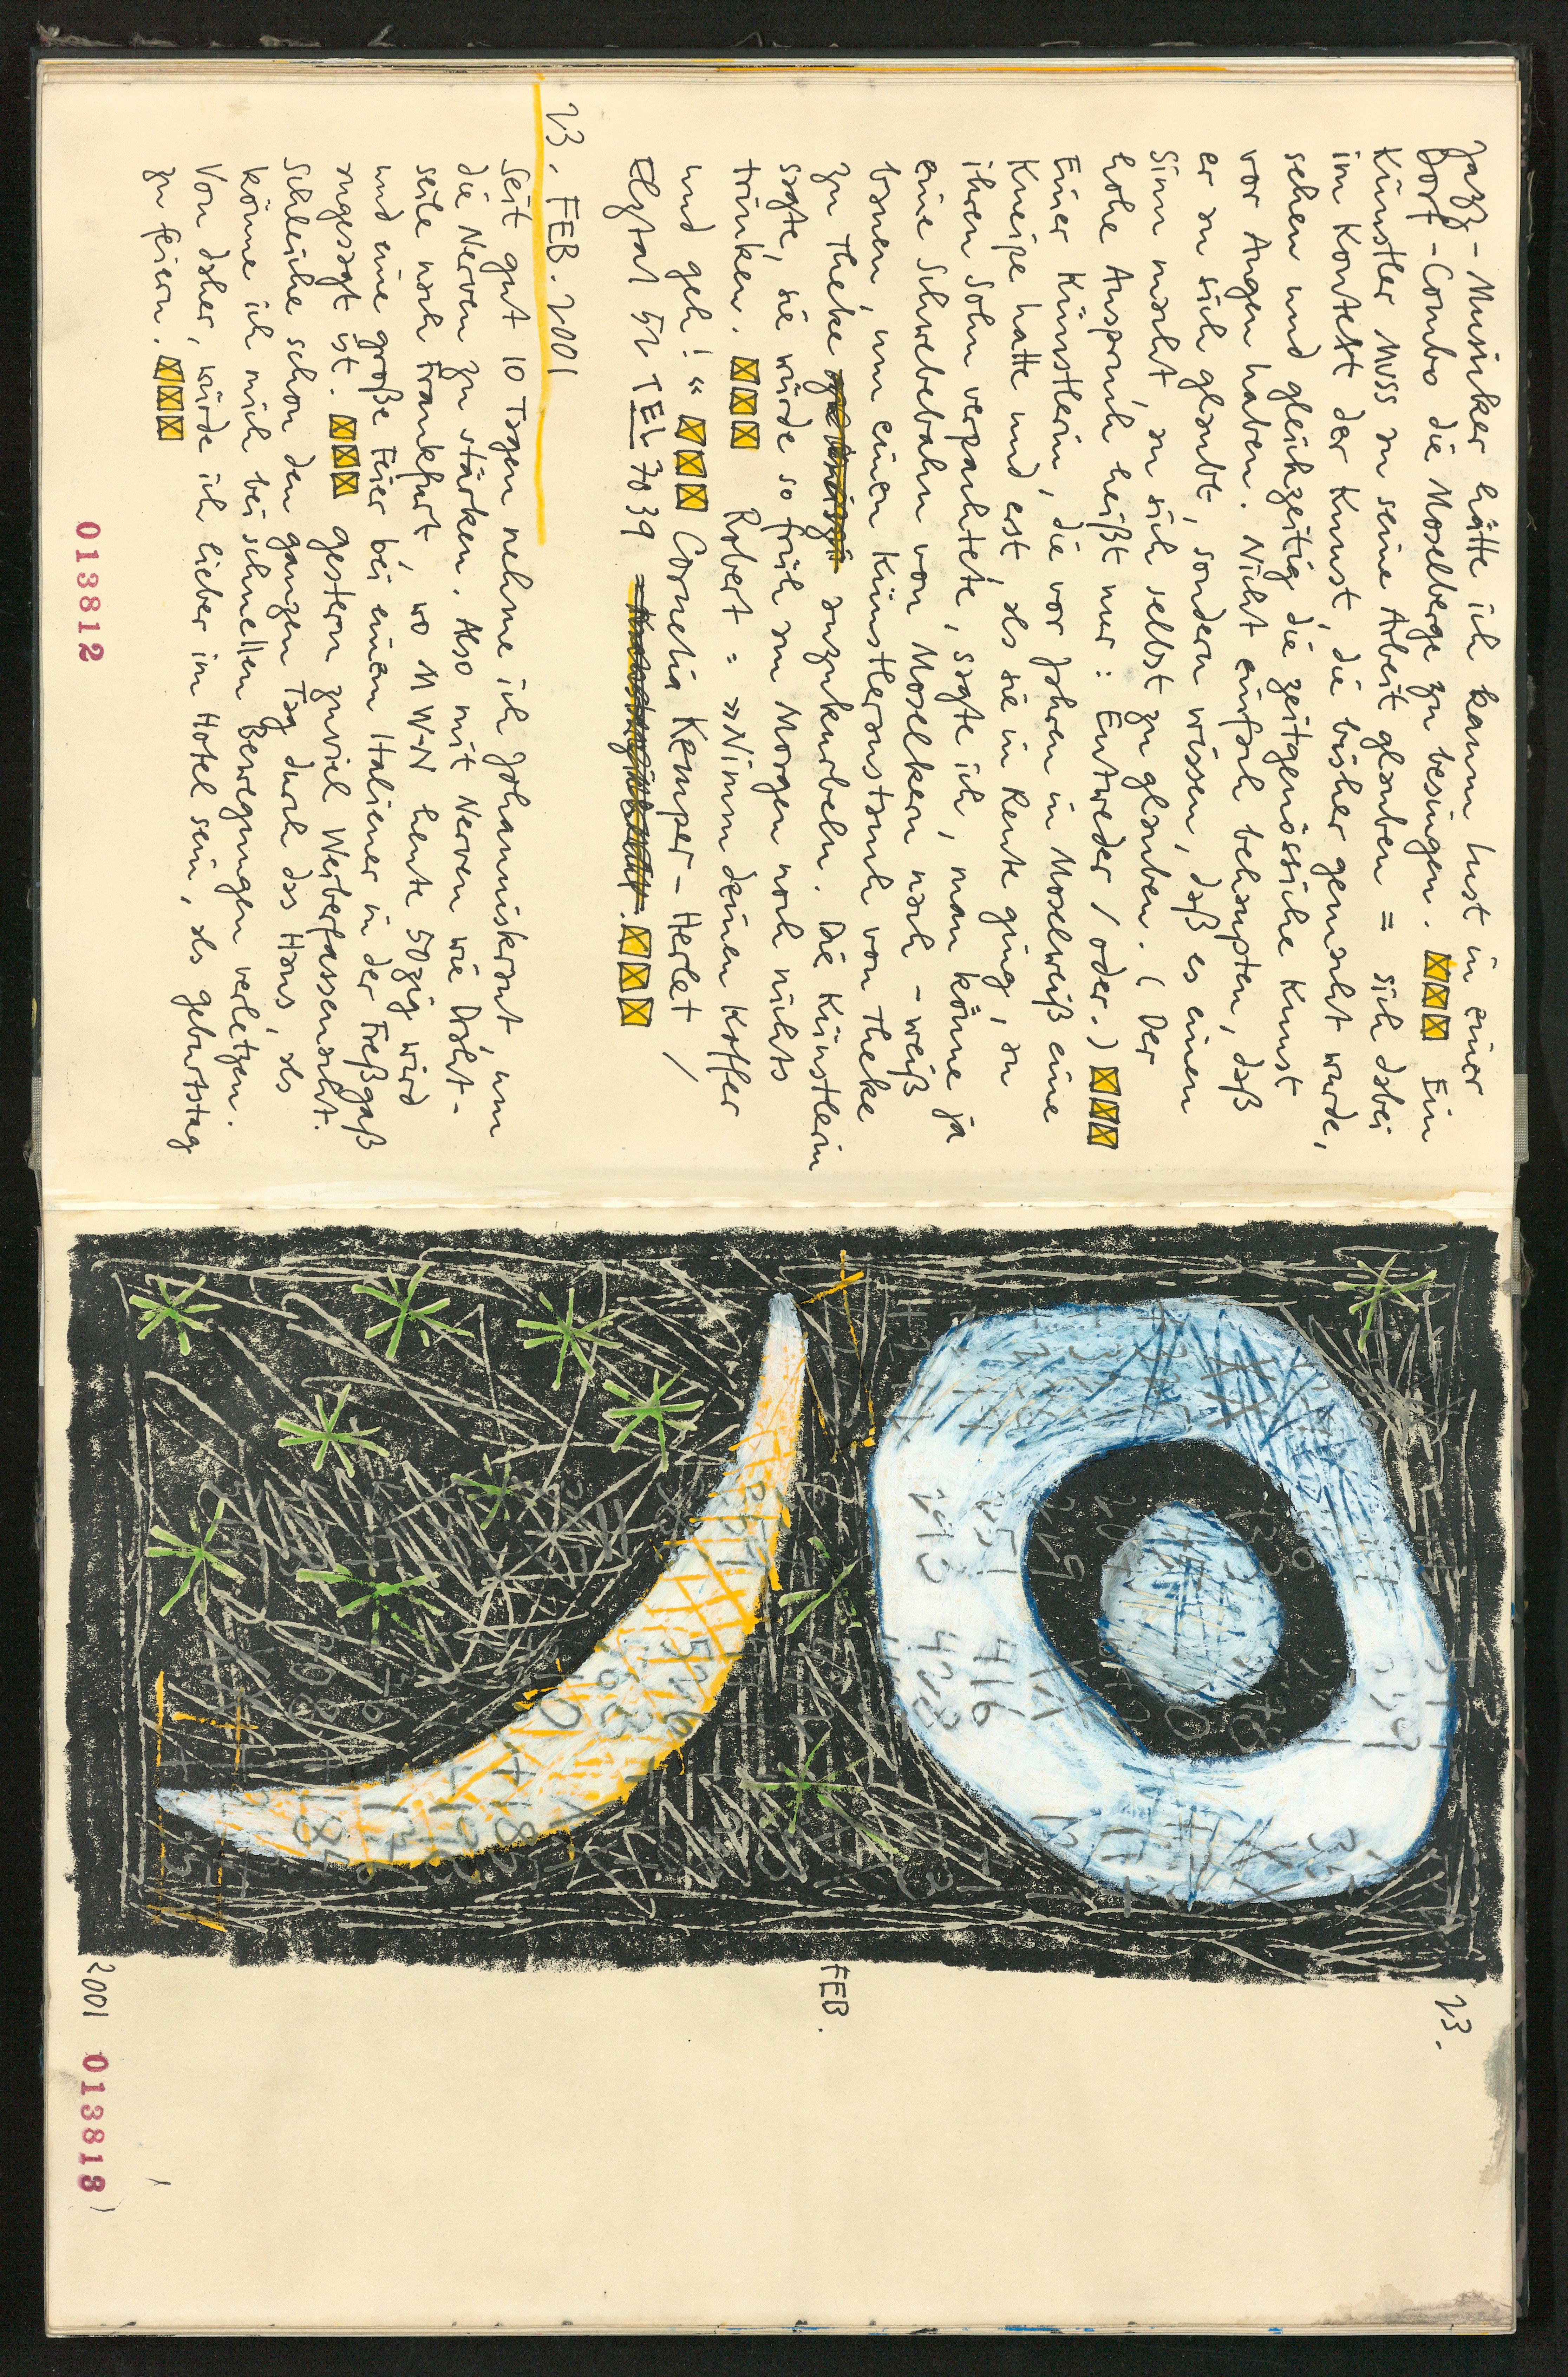 Jazz-Musiker hätte ich kaum Lust in einer
Dorf-Combo die Moselberge zu besingen. Ein
Künstler MUSS an seine Arbeit glauben = sich dabei
im Kontext der Kunst, die bisher gemacht wurde,
sehen und gleichzeitig die zeitgenössische Kunst
vor Augen haben. Nicht einfach behaupten, daß
er an sich glaubt, sondern wissen, daß es einen
Sinn macht, an sich selbst zu glauben. (Der
hohe Anspruch heißt nur: Entweder / oder.)
Einer Künstlerin, die vor Jahren in Moselweiß eine
Kneipe hatte und erst, als sie in Rente ging, an
ihren Sohn verpachtete, sagte ich, man könne ja
eine Schwebebahn von Moselkern nach -weiß
bauen, um einen Künstleraustausch von Theke
zu Theke anzukurbeln. Die Künstlerin
sagte, sie würde so früh am Morgen noch nichts
trinken. Robert = »Nimm deinen Koffer
und geh!« Cornelia Kemper-Herlet /
Elztal 52 TEL 7039
23. FEB. 2001
Seit gut 10 Tagen nehme ich Johanniskraut, um
die Nerven zu stärken. Also mit Nerven wie Draht-
seile nach Frankfurt, wo MW-N heute 50zig wird
und eine große Feier bei einem Italiener in der Freßgaß
angesagt ist. Gestern zuviel Weiberfassenacht.
Schleiche schon den ganzen Tag durch das Haus, als
könne ich mich bei schnellen Bewegungen verletzen.
Von daher, würde ich lieber im Hotel sein, als geburtstag
zu feiern.
013812
23.
FEB.
2001
013813
351
293
416
428
526